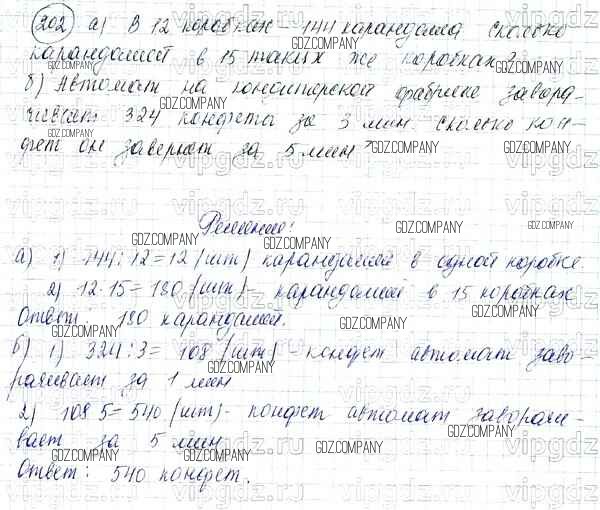 202 а) В 12 коробках - 144 карандаша сколько
карандашей в 15 таких же коробках?
б) Автомат на кондитерской фабрике завора-
чивает 324 конфета за 3 мин. сколько кон-
фет он завернет за 5 мин?
Решение:
а) 1) 144:12=12 (шт) карандашей в одной коробке.
2) 12·15=180 (шт) - карандашей в 15 коробках
Ответ: 180 карандашей.
б) 1) 324:3= 108 (шт) - конфет автомат заво-
рачивает за 1 мин
2) 108 5=540 (шт) - конфет автомат заворачи-
вает за 5 мин
Ответ: 540 конфет.